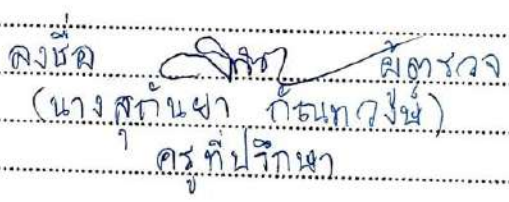 ลงชื่อ ผู้ตรวจ
(นางสุกันยา กัณฑวงษ์)
ครูที่ปรึกษา